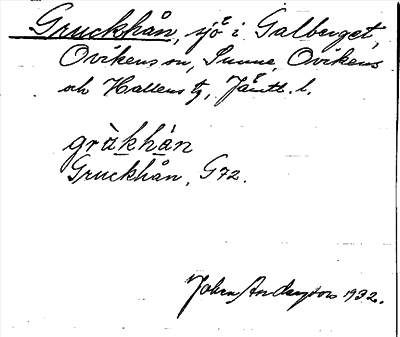 Gruckhån, sjö i Galberget,
Ovikens sn, Sunne, Ovikens
och Hallens tg, Jämtl. l.
gràkhàn
Gruckhån, G72.
Johan Andersson 1932.